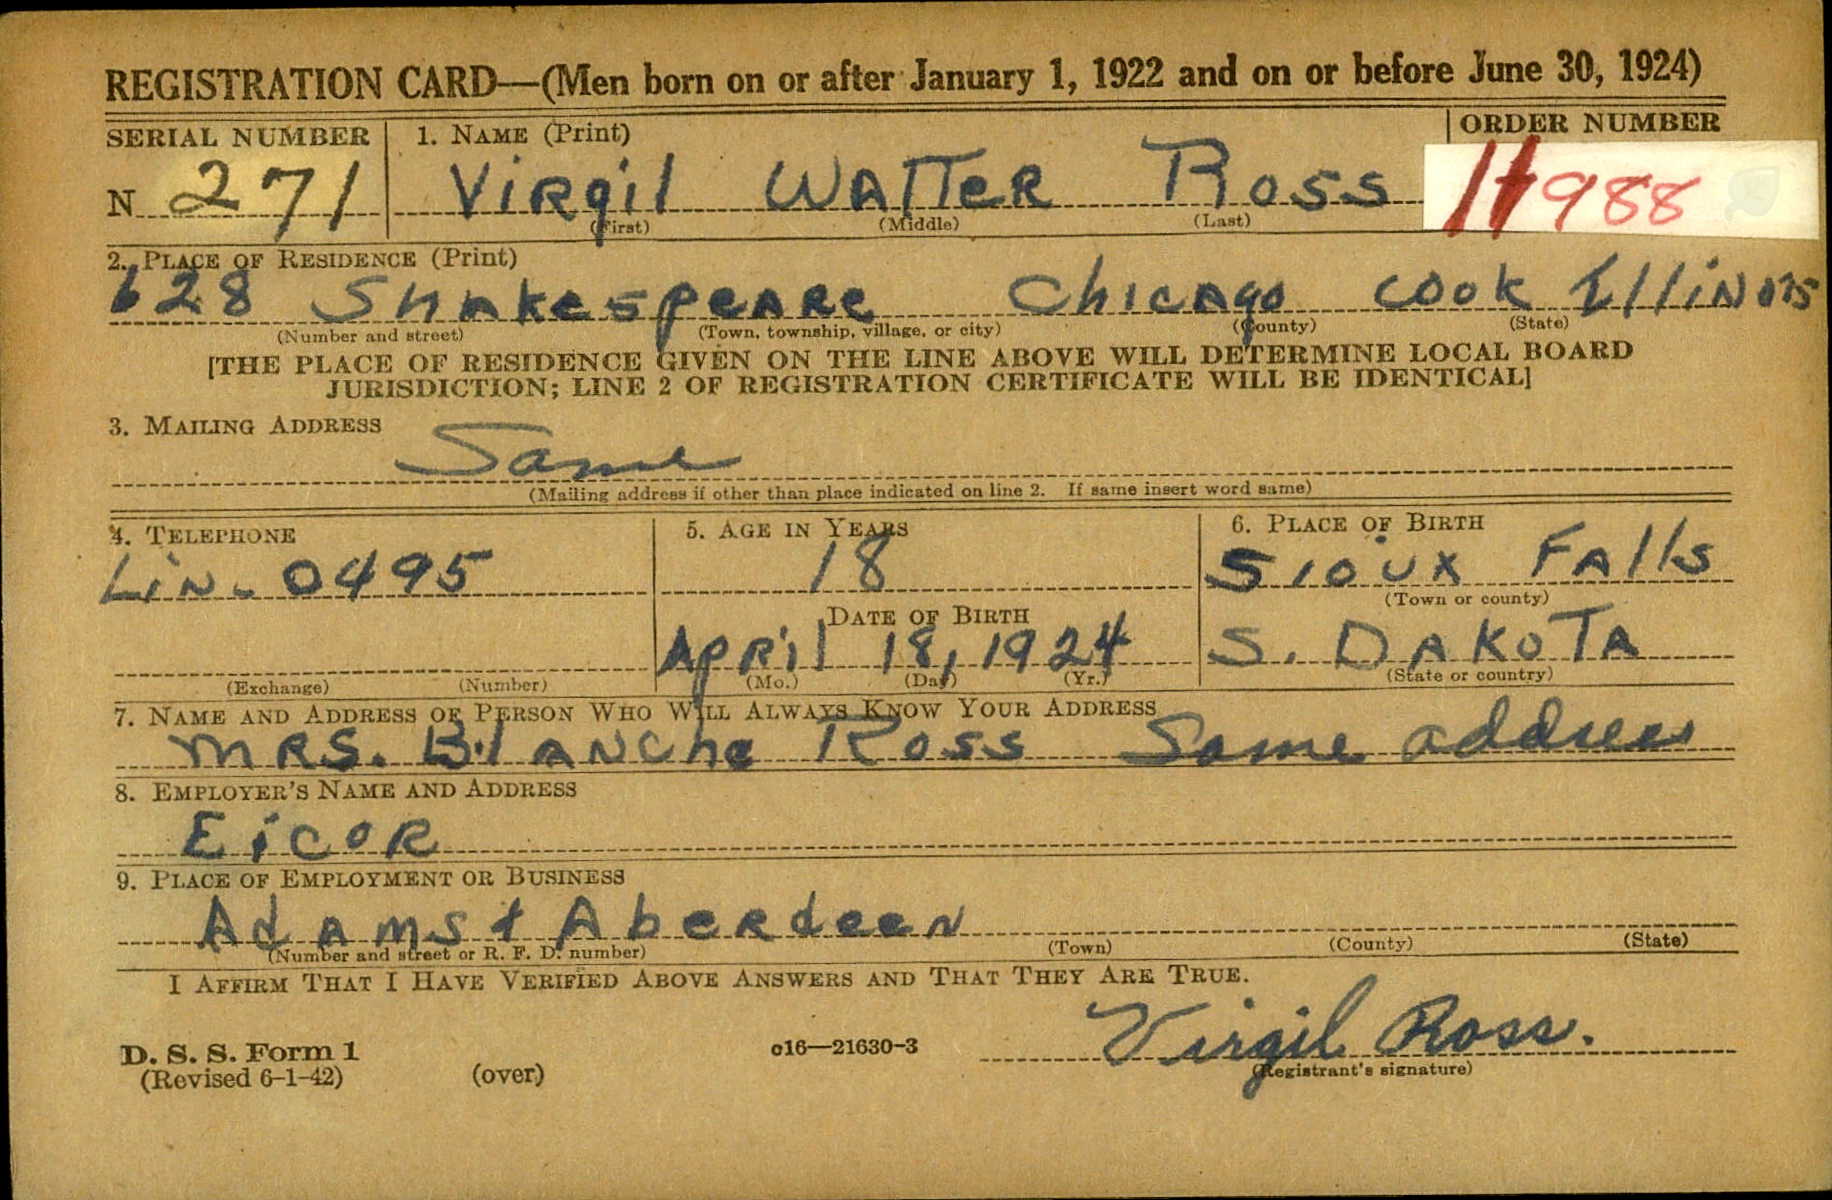 REGISTRATION CARD—(Men born on or after January 1, 1922 and on or before June 30, 1924)
SERIAL NUMBER 1. NAME (Print) ORDER NUMBER
N 271 Virgil Walter Ross 11988
(First) (Middle) (Last)
2. PLACE OF RESIDENCE (Print)
628 Shakespeare Chicago Cook Illinois
(Number and street) (Town, township, village, or city) (County) (State)
[THE PLACE OF RESIDENCE GIVEN ON THE LINE ABOVE WILL DETERMINE LOCAL BOARD
JURISDICTION; LINE 2 OF REGISTRATION CERTIFICATE WILL BE IDENTICAL]
3. MAILING ADDRESS
Same
(Mailing address if other than place indicated on line 2. If same insert word same)
4. TELEPHONE 5. AGE IN YEARS 6. PLACE OF BIRTH
Lin. 0495 18 Sioux Falls
(Town or county)
DATE OF BIRTH
April 18, 1924 S. Dakota
(Exchange) (Number) (Mo.) (Day) (Yr.) (State or country)
7. NAME AND ADDRESS OF PERSON WHO WILL ALWAYS KNOW YOUR ADDRESS
Mrs. Blanche Ross Same address
8. EMPLOYER'S NAME AND ADDRESS
Eicor
9. PLACE OF EMPLOYMENT OR BUSINESS
Adams & Aberdeen
(Number and street or R. F. D. number) (Town) (County) (State)
I AFFIRM THAT I HAVE VERIFIED ABOVE ANSWERS AND THAT THEY ARE TRUE.
Virgil Ross.
D. S. S. Form 1 c16—21630-3
(Revised 6-1-42) (over) (Registrant's signature)